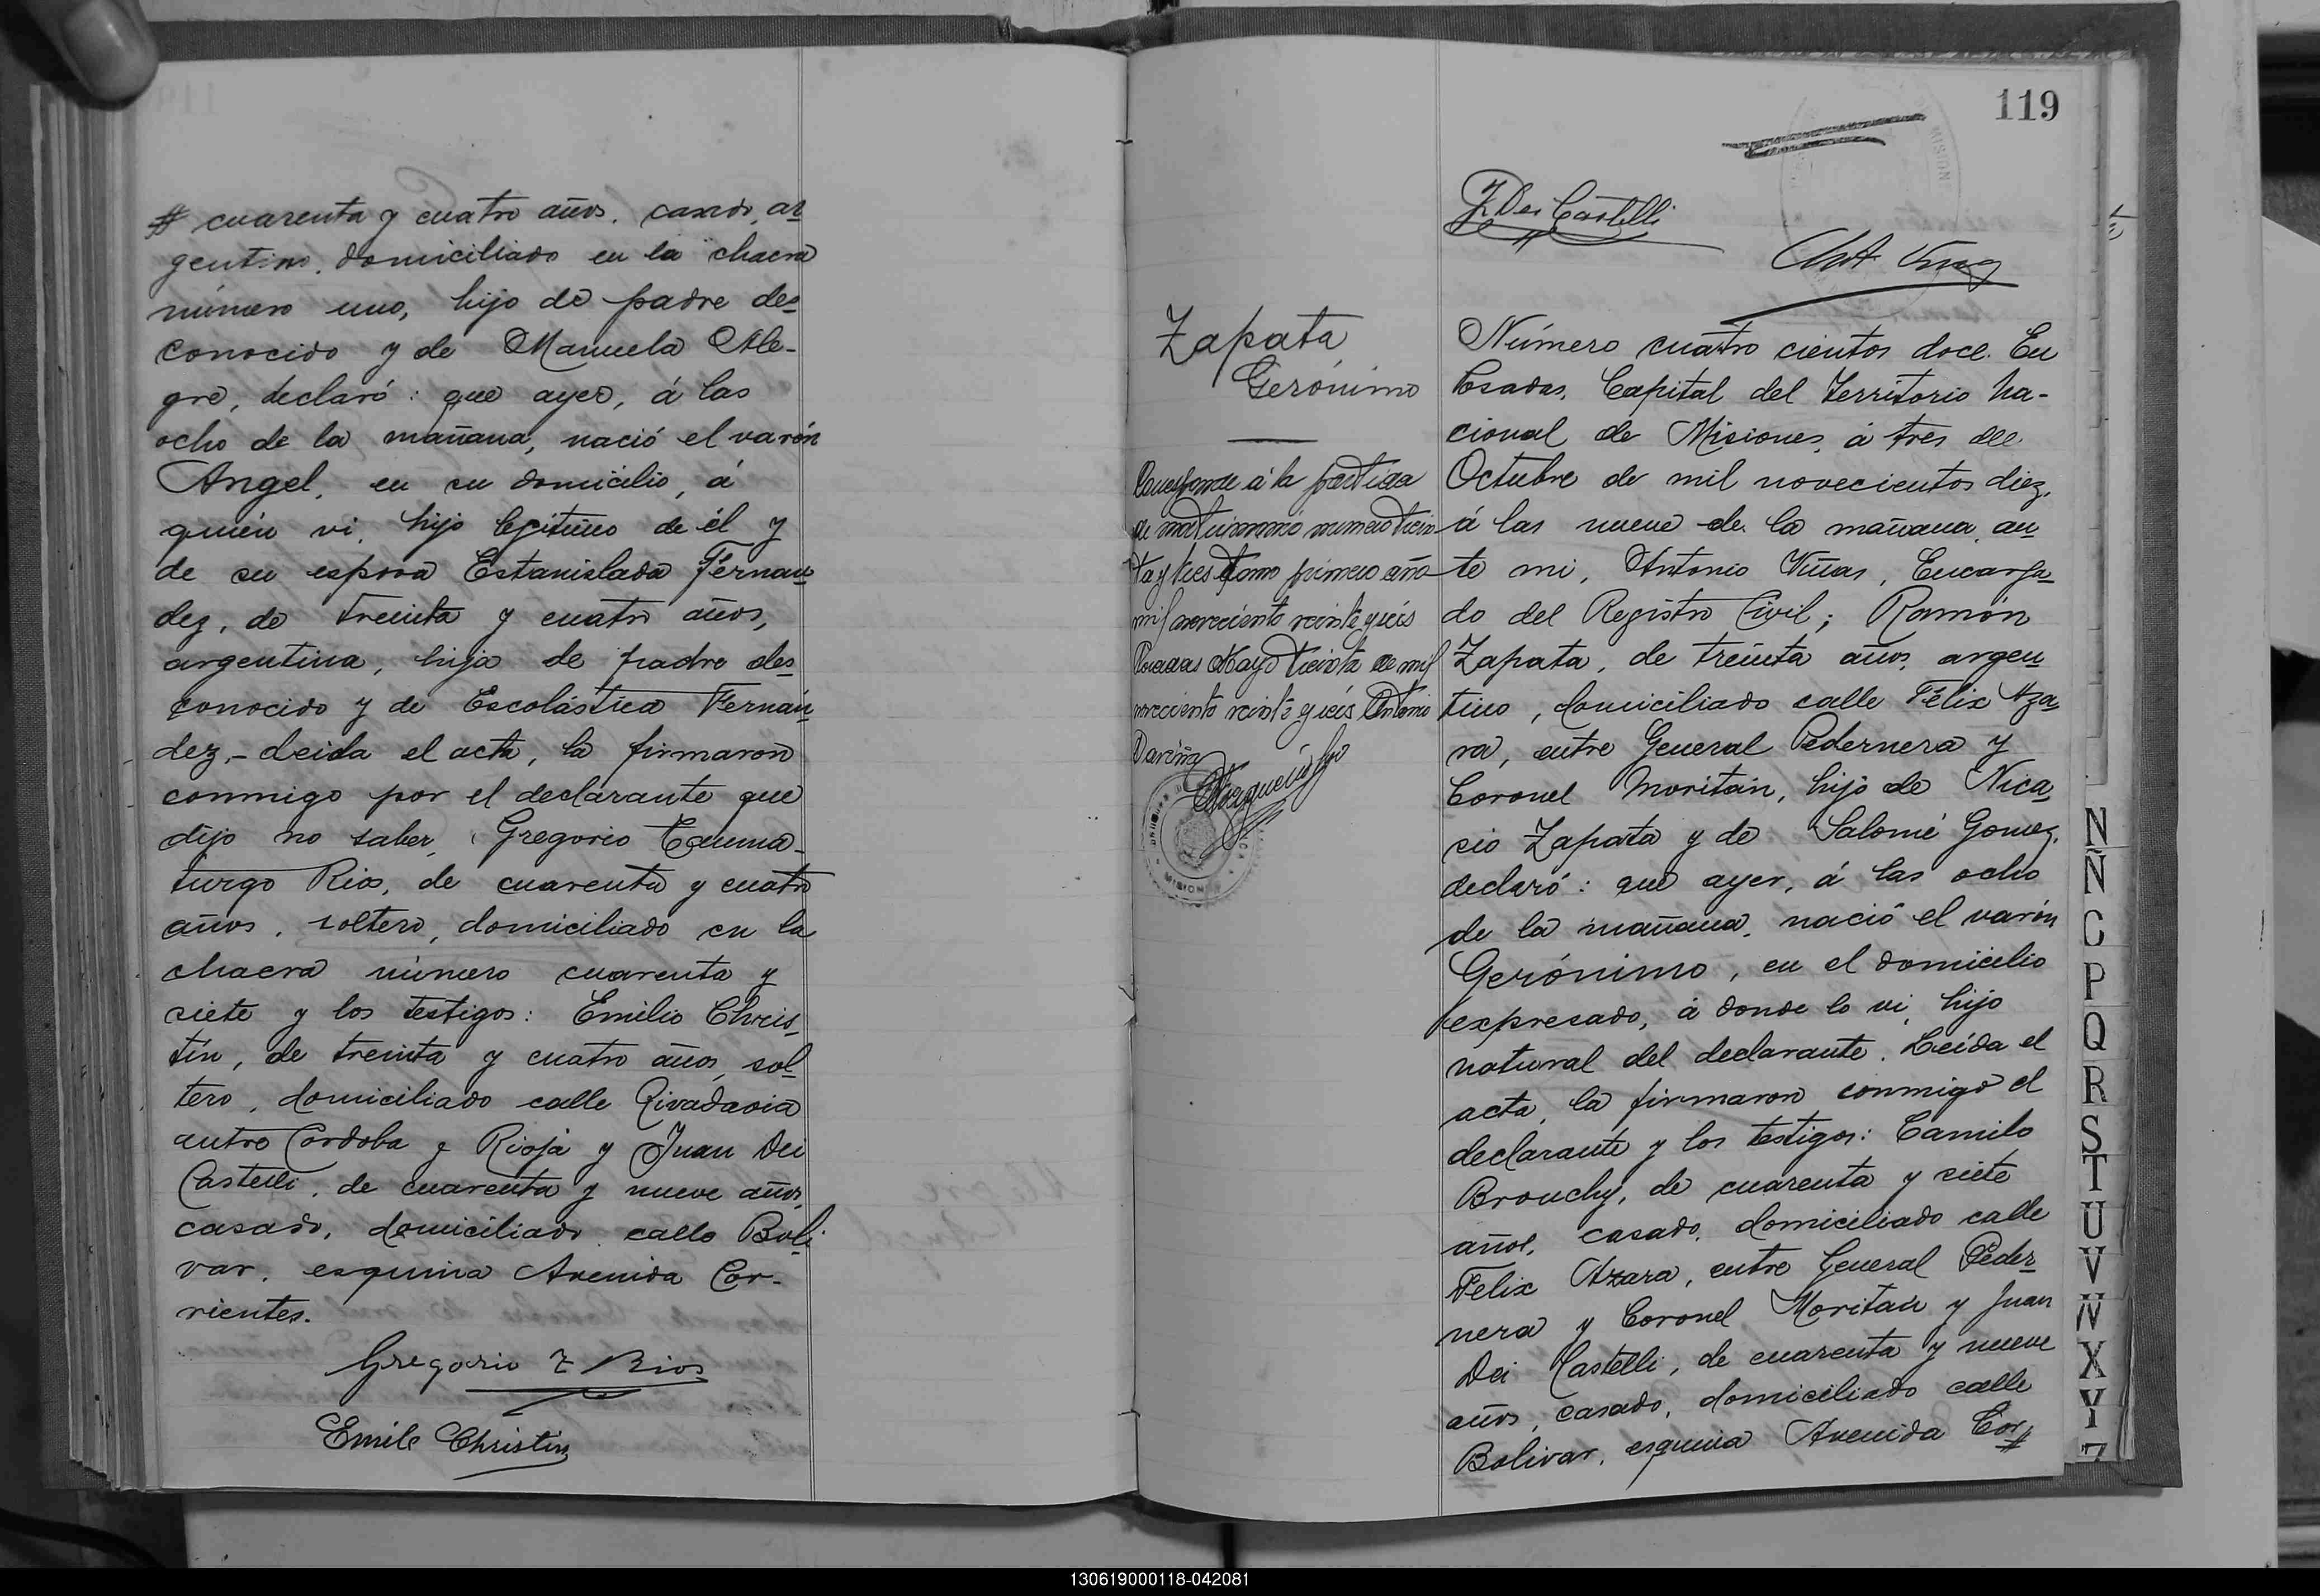 # cuarenta y cuatro años, casado, ar
gentino, domiciliado en la chacra
número uno, hijo de padre des
conocido y de Manuela Ale-
gre, declaró: que ayer, á las
ocho de la mañana, nació el varón
Angel, en su domicilio, á
quién vi, hijo legítimo de él y
de su esposa Estanislada Fernan
dez, de treinta y cuatro años,
argentina, hija de padre des
conocido y de Escolástica Fernán
dez.- Leida el acta, la firmaron
conmigo por el declarante que
dijo no saber, Gregorio Tauma-
turgo Rios, de cuarenta y cuatro
años, soltero, domiciliado en la
chacra número cuarenta y
siete y los testigos: Emilio Chris
tin, de treinta y cuatro años, sol
tero, domiciliado calle Rivadavia
entre Córdoba y Rioja y Juan Dei
Castelli, de cuarenta y nueve años,
casado, domiciliado calle Boli
var, esquina Avenida Cor-
rientes.
Gregorio T Rios
Emile Christin
119
J Dei Castelli
Zapata
Gerónimo
Corresponde á la partida
de matrimonio numero trein
ta y tres tomo primero año
mil novecientos veinte y seis
Posadas Mayo treinta de mil
novecientos veinte y seis Antonio
Número cuatro cientos doce. En
Posadas, Capital del Territorio Na-
cional de Misiones, á tres de
Octubre de mil novecientos diez,
á las nueve de la mañana, an
te mi, Antonio Viñas, Encarga
do del Registro Civil; Ramón
Zapata, de treinta años, argen
tino, domiciliado calle Félix Aza
ra, entre General Pedernera y
Coronel Moritán, hijo de Nica
sio Zapata y de Salomé Gomez,
declaró: que ayer, á las ocho
de la mañana, nació el varón
Gerónimo, en el domicilio
expresado, á donde lo vi, hijo
natural del declarante. Leída el
acta, la firmaron conmigo el
declarante y los testigos: Camilo
Brouchy, de cuarenta y siete
años, casado, domiciliado calle
Felix Azara, entre General Peder
nera y Coronel Moritán y Juan
Dei Castelli, de cuarenta y nueve
años, casado, domiciliado calle
Bolivar, esquina Avenida Cor#
N
Ñ
O
P
Q
R
S
T
U
V
W
X
Y
Z
130619000118-042081